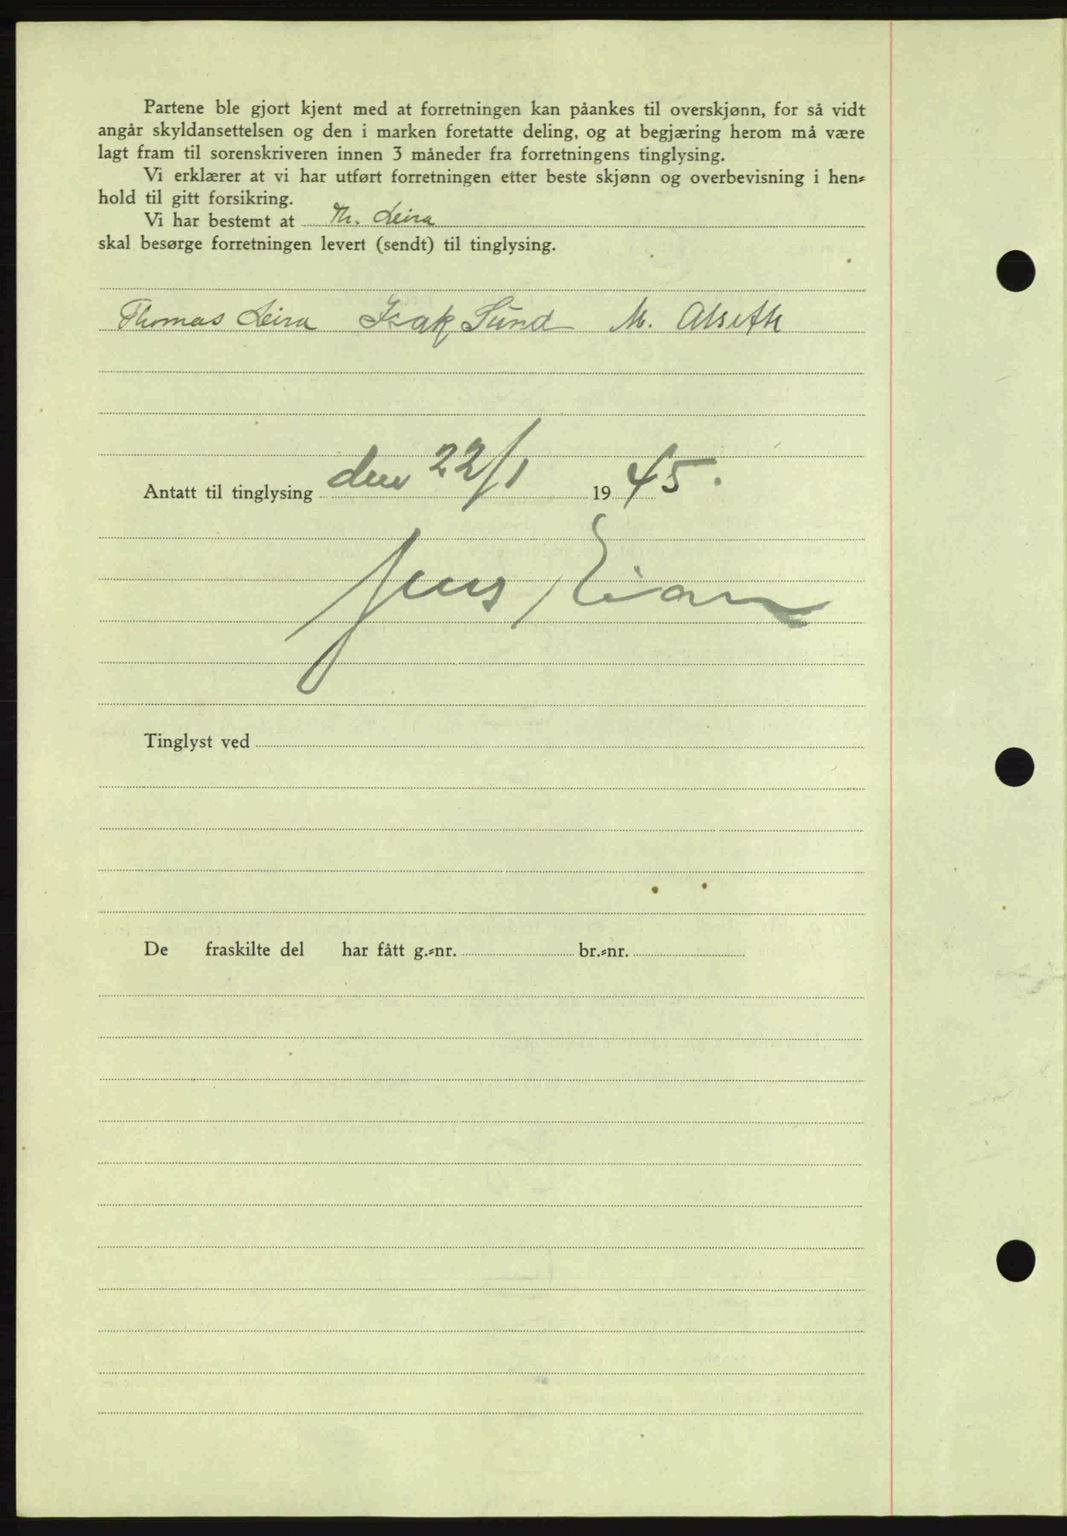 Partene ble gjort kjent med at forretningen kan påankes til overskjønn, for så vidt
angår skyldansettelsen og den i marken foretatte deling, og at begjæring herom må være
lagt fram til sorenskriveren innen 3 måneder fra forretningens tinglysing.
Vi erklærer at vi har utført forretningen etter beste skjønn og overbevisning i hen-
hold til gitt forsikring.
Vi har bestemt at Th. Leira
skal besørge forretningen levert (sendt) til tinglysing.
Thomas Leira Isak Sund M. Alseth
Antatt til tinglysing den 22/1 1945.
Jens Eian
Tinglyst ved
De fraskilte del har fått g.-nr. br.-nr.